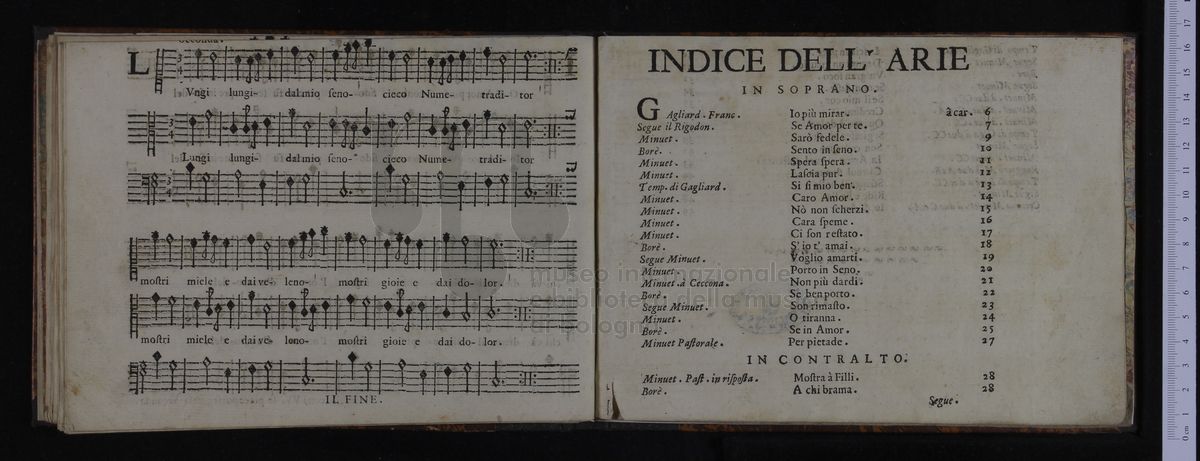 Seconda.
L Vngi lungi- dal mio seno- cieco Nume- tradi- tor
Lungi lungi- dal mio seno- cieco Nume- tradi- tor
mostri miele e dai ve- leno- mostri gioie e dai do- lor.
mostri miele e dai ve- leno- mostri gioie e dai do- lor.
IL FINE.
INDICE DELL' ARIE
IN SOPRANO.
GAgliard. Franc. Io più mirar. à car. 6
Segue il Rigodon. Se Amor per te. 7
Minuet. Sarò fedele. 9
Borè. Sento in seno. 10
Minuet. Spera spera. 11
Minuet. Lascia pur. 12
Temp. di Gagliard. Si sì mio ben. 13
Minuet. Caro Amor. 14
Minuet. Nò non scherzi. 15
Minuet. Cara speme. 16
Minuet. Ci son restato. 17
Borè. S' io t' amai. 18
Segue Minuet. Voglio amarti. 19
Minuet. Porto in Seno. 20
Minuet. à Ceccona. Non più dardi. 21
Borè. Se ben porto. 22
Segue Minuet. Son rimasto. 23
Minuet. O tiranna. 24
Borè. Se in Amor. 25
Minuet Pastorale. Per pietade. 27
IN CONTRALTO.
Minuet. Past. in risposta. Mostra à Filli. 28
Borè. A chi brama. 28
Segue.
museo internazionale
e biblioteca della musica
di bologna